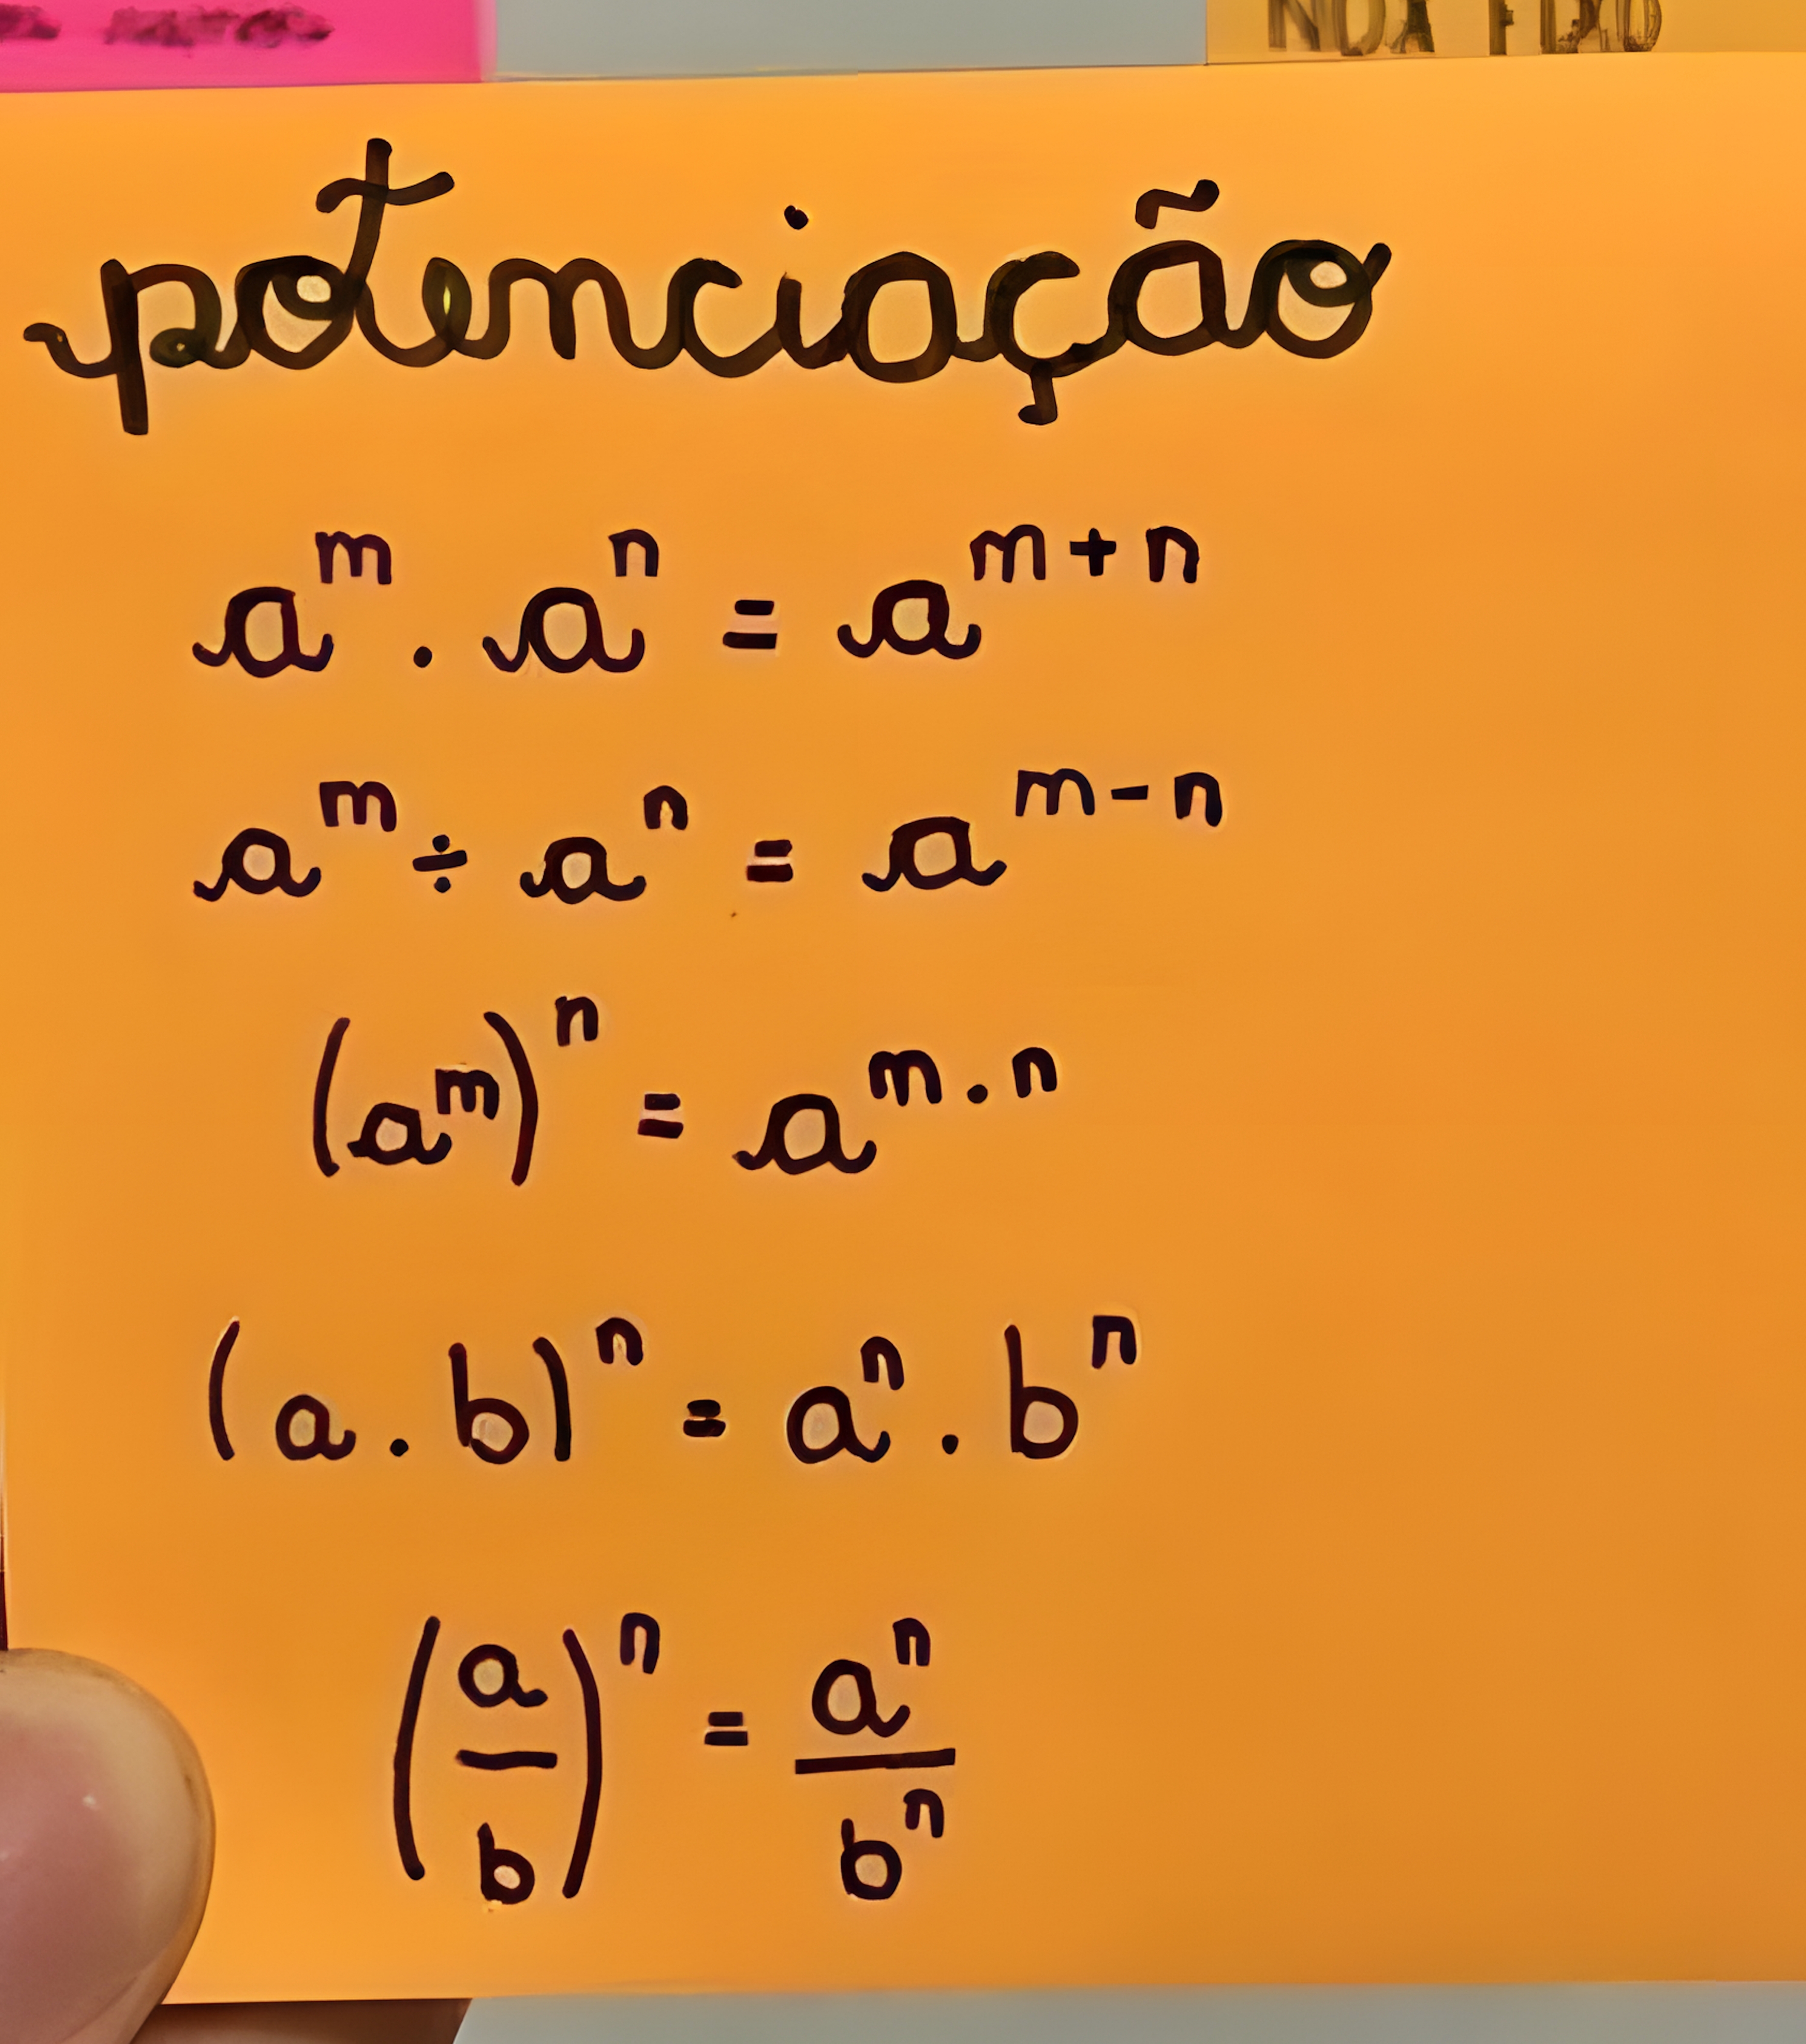 potenciação
a^m . a^n = a^{m+n}
a^m ÷ a^n = a^{m-n}
(a^m)^n = a^{m.n}
(a.b)^n = a^n . b^n
(a/b)^n = a^n/b^n